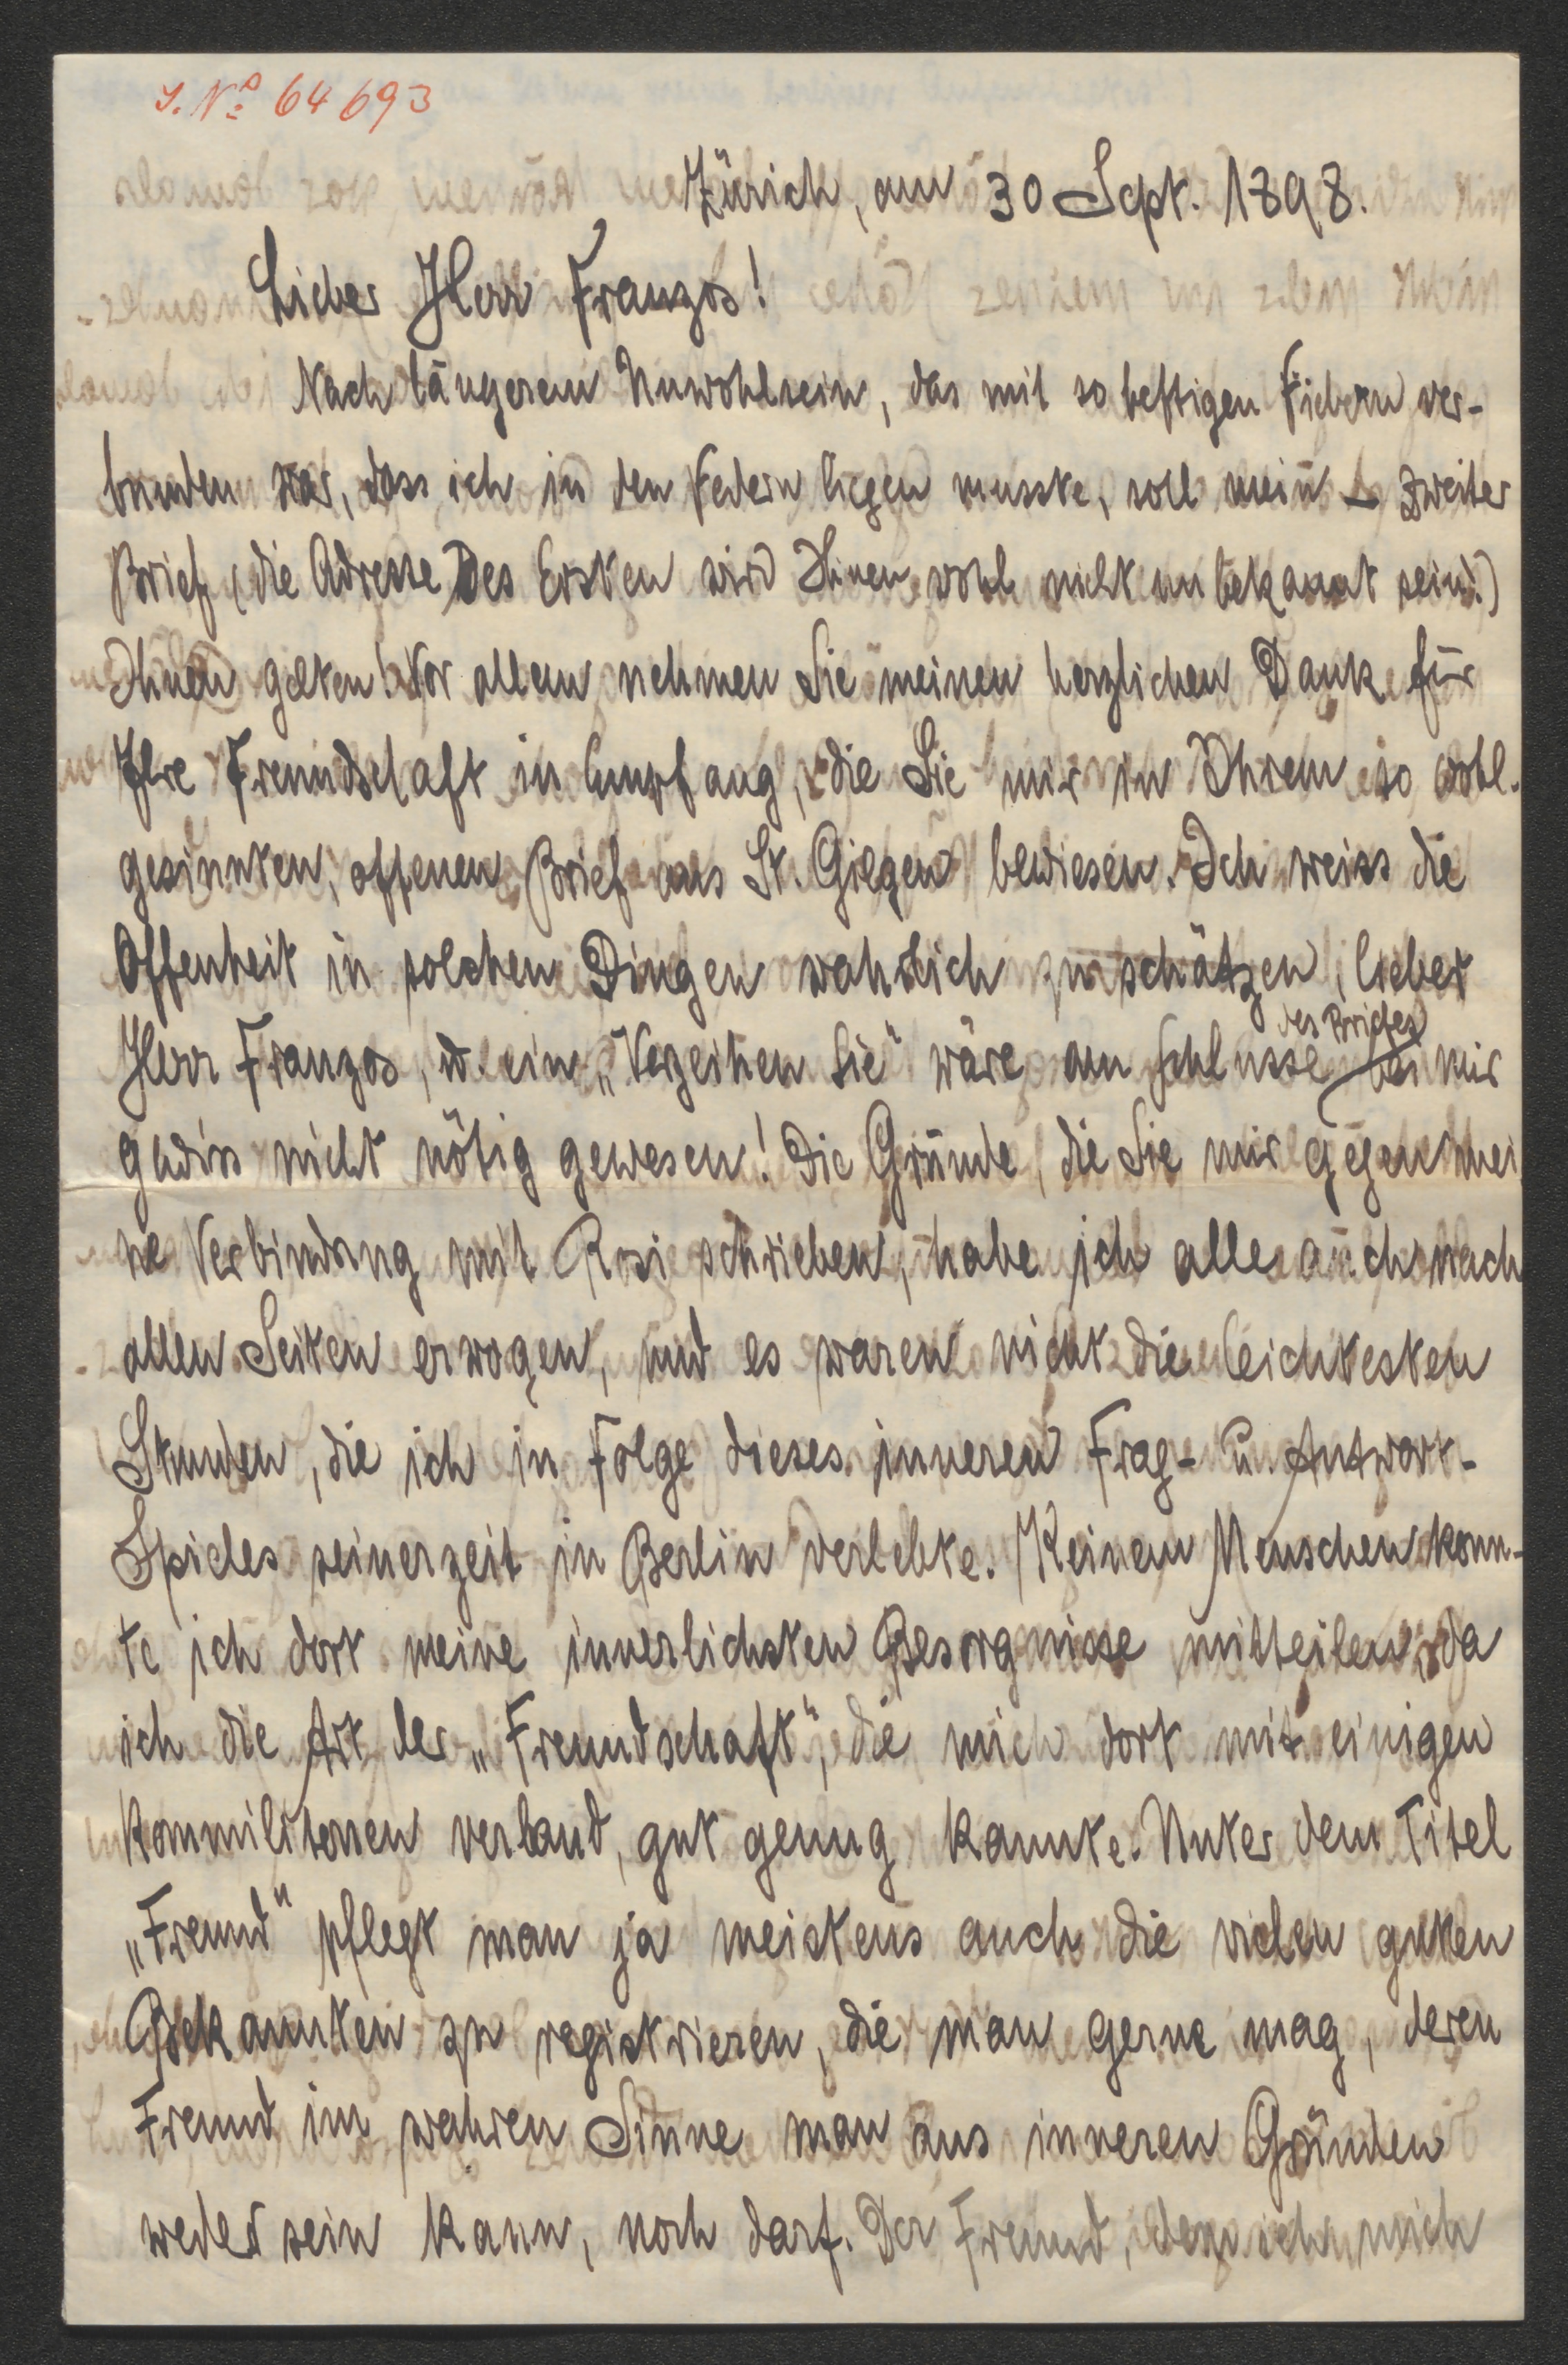 J. Nº 64693
Zürich, am 30 Sept. 1898.
Lieber Herr Franzos!
Nach längerem Unwohlsein, das mit so heftigen Fiebern ver-
bunden war, dass ich in den Federn liegen musste, soll mein – zweiter
Brief (die Adresse des Ersten wird Ihnen wohl nicht unbekannt sein!)
Ihnen gelten! Vor allem nehmen Sie meinen herzlichen Dank für
Ihre Freundschaft in Empfang, die Sie mir in Ihrem so wohl-
gesinnten, offenen Brief aus St. Gilgen bewiesen. Ich weiss die
Offenheit in solchen Dingen wahrlich zu schätzen, lieber
Herr Franzos, u. ein „Verzeihen Sie" wäre am Schlusse des Briefes bei mir
gewiss nicht nötig gewesen! Die Gründe, die Sie mir gegen mei
ne Verbindung mit Rosi schrieben, habe ich alle auch nach
allen Seiten erwogen, und es waren nicht die leichtesten
Stunden, die ich in Folge dieses inneren Frag- u. Antwort-
Spieles seinerzeit in Berlin verlebte. Keinem Menschen konn-
te ich dort meine innerlichsten Besorgnisse mitteilen, da
ich die Art der „Freundschaft", die mich dort mit einigen
Kommilitonen verband, gut genug kannte. Unter dem Titel
„Freund" pflegt man ja meistens auch die vielen guten
Bekannten zu registrieren, die man gerne mag, deren
Freund im wahren Sinne man aus inneren Gründen
weder sein kann, noch darf. Der Freund, dem ich mich